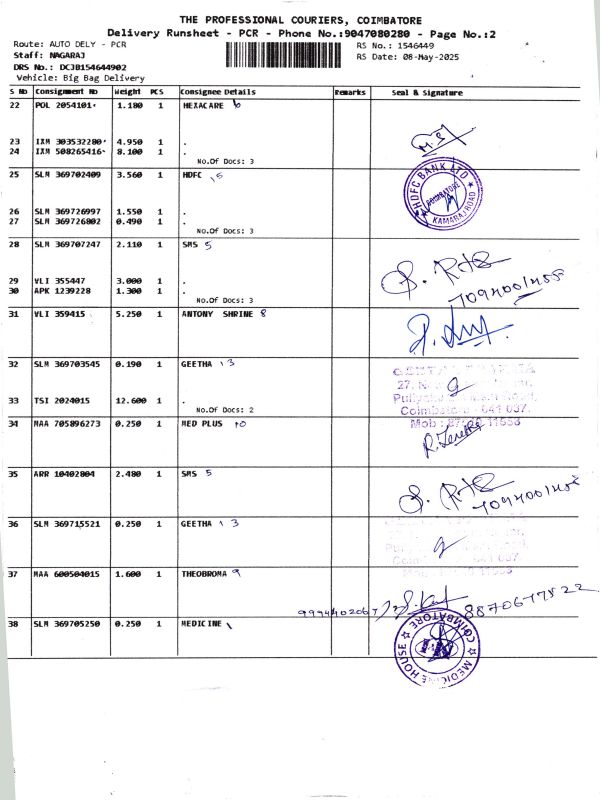 THE PROFESSIONAL COURIERS, COIMBATORE
Delivery Runsheet - PCR - Phone No.:9047080280 - Page No.:2
Route: AUTO DELY - PCR
RS No.: 1546449
Staff: NAGARAJ
RS Date: 08-May-2025
DRS No.: DCJB154644902
Vehicle: Big Bag Delivery
S No Consignment No Weight PCS Consignee Details Remarks Seal & Signature
22 POL 2054101 1.180 1 HEXACARE 6
23 IXM 303532280 4.950 1 .
24 IXM 508265416 8.100 1 .
No.Of Docs: 3
25 SLM 369702409 3.560 1 HDFC 15
HDFC BANK LTD
COIMBATORE
KAMARAJ ROAD
26 SLM 369726997 1.550 1 .
27 SLM 369726802 0.490 1 .
No.Of Docs: 3
28 SLM 369707247 2.110 1 SMS 5
29 VLI 355447 3.000 1 .
30 APK 1239228 1.300 1 .
No.Of Docs: 3
31 VLI 359415 5.250 1 ANTONY SHRINE 8
32 SLM 369703545 0.190 1 GEETHA 13
33 TSI 2024015 12.600 1 .
No.Of Docs: 2
Coimbatore - 641 037.
34 MAA 705896273 0.250 1 MED PLUS 10
35 ARR 10402804 2.480 1 SMS 5
36 SLM 369715521 0.250 1 GEETHA 13
37 MAA 600504015 1.600 1 THEOBROMA 9
8870677822
38 SLM 369705250 0.250 1 MEDICINE 1
MEDICINE HOUSE
COIMBATORE